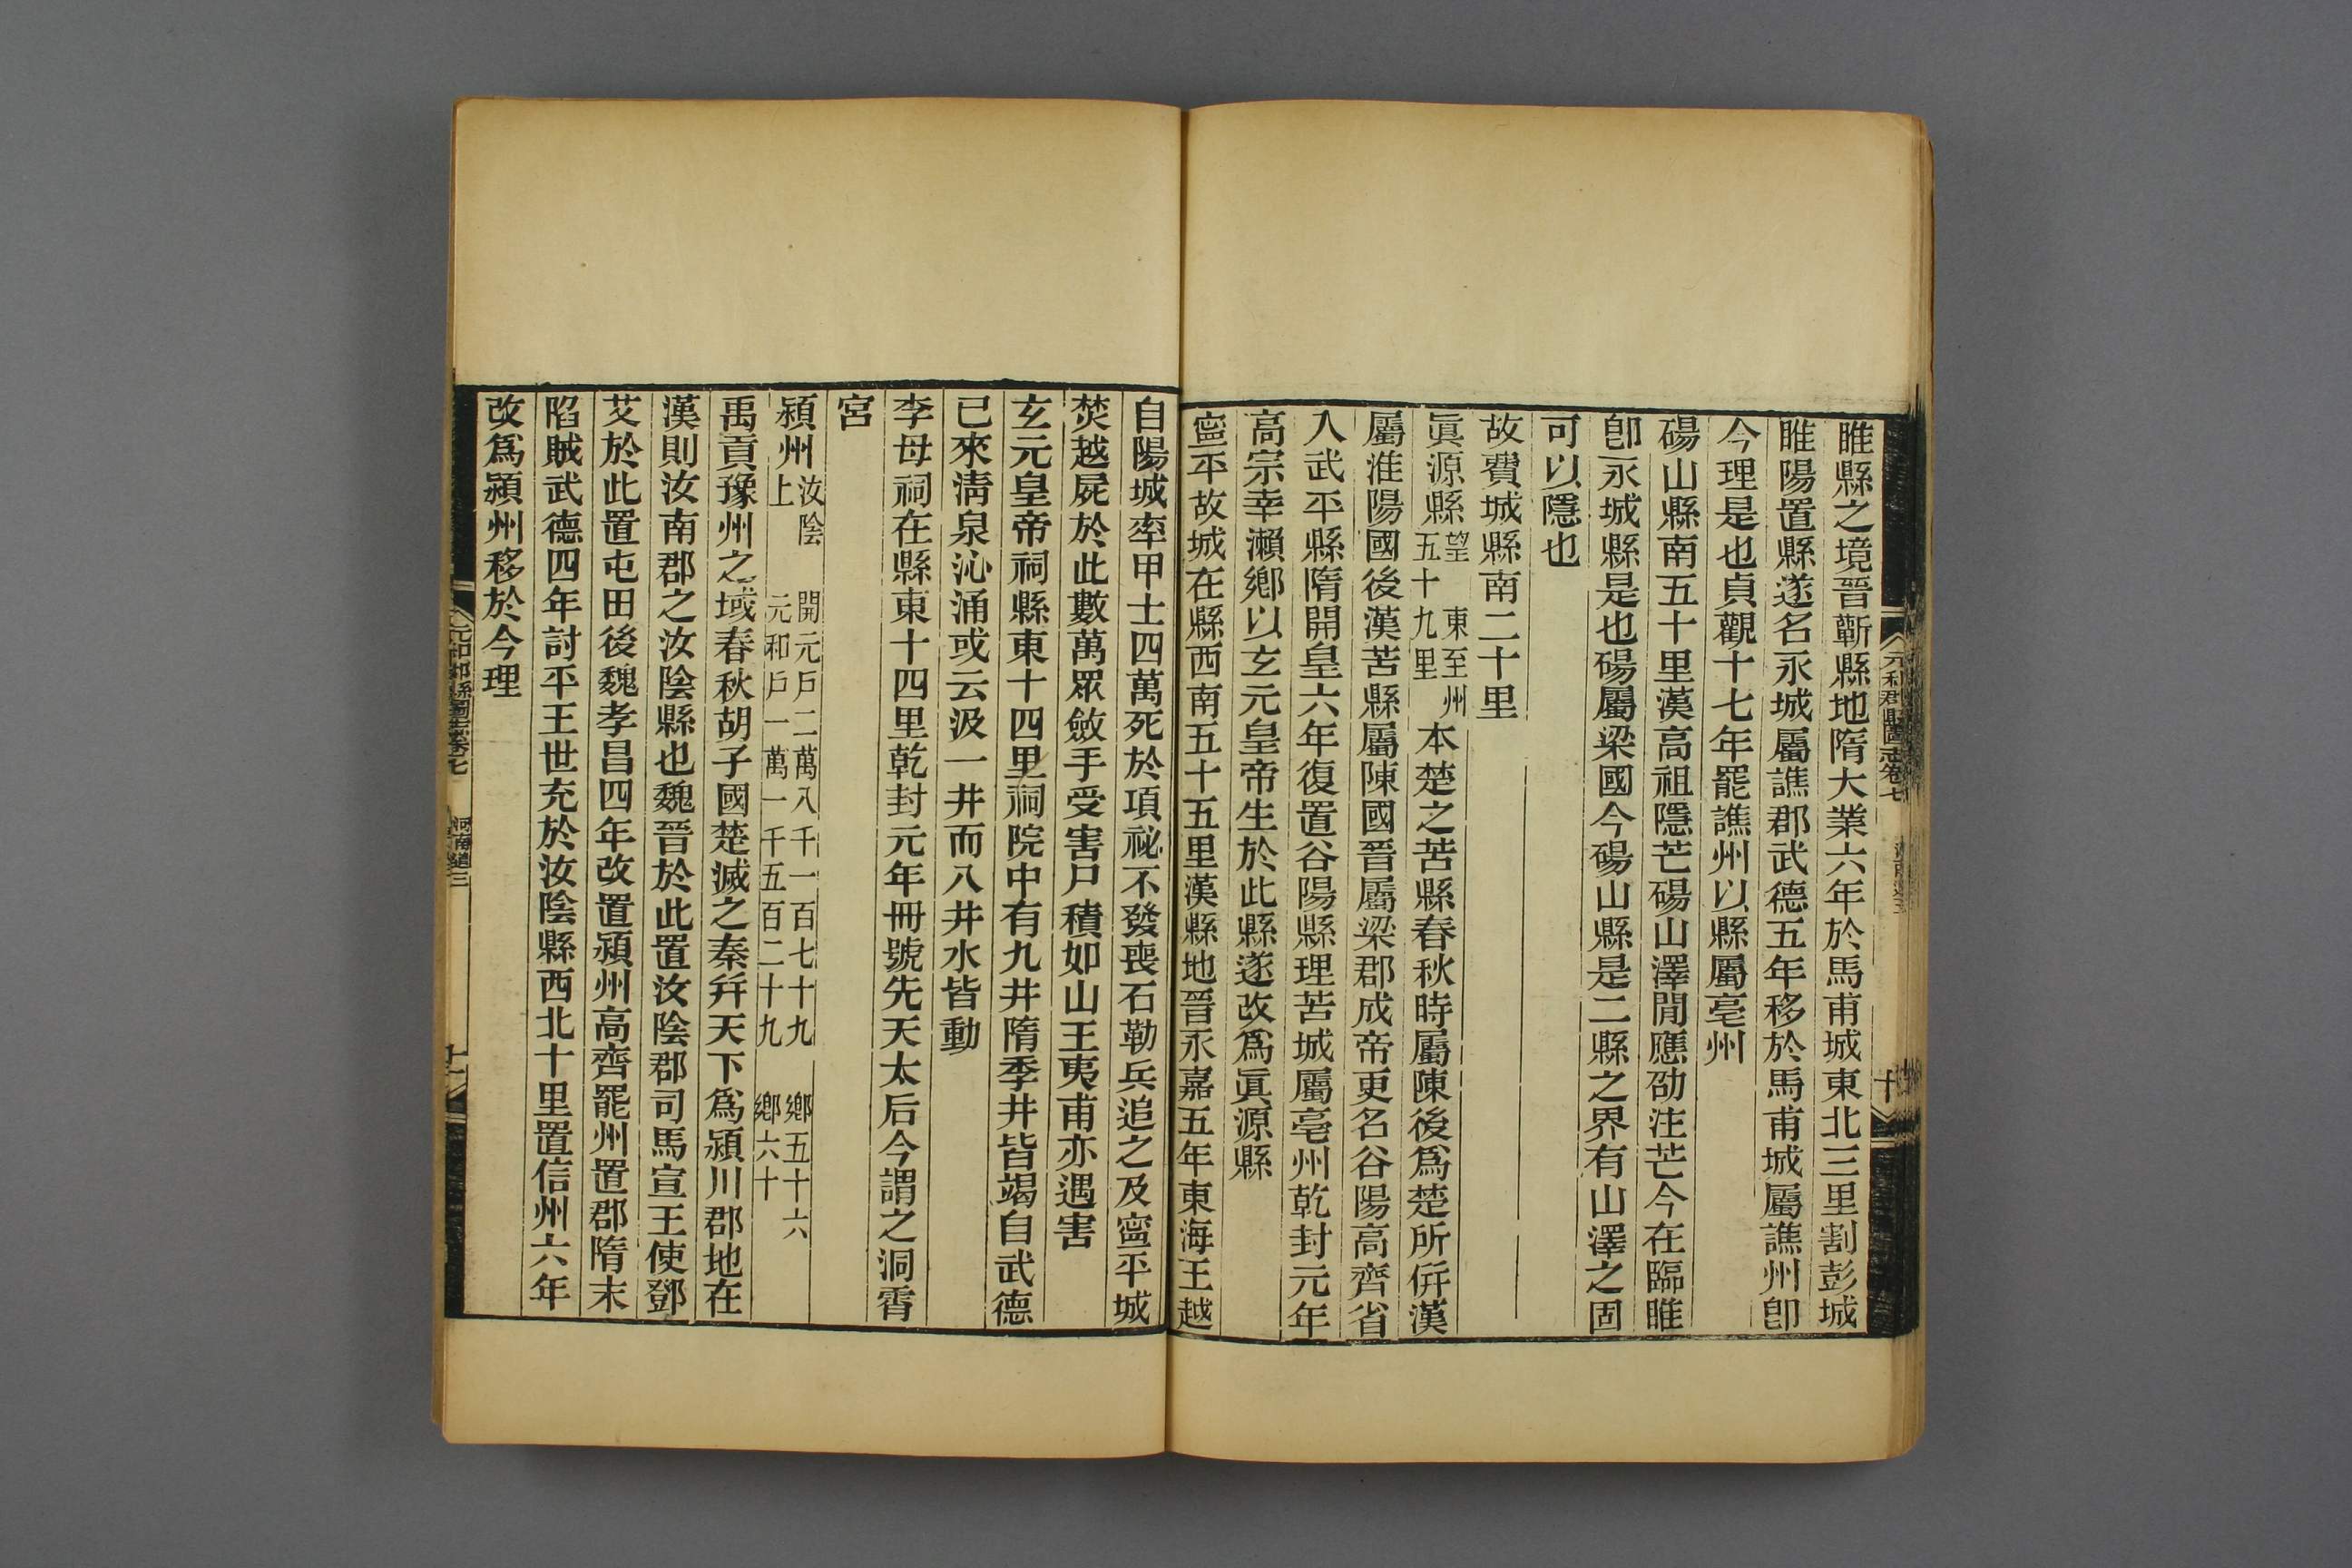 睢縣之境晉蘄縣地隋大業六年於馬甫城東北三里割彭城
睢陽置縣遂名永城屬譙郡武德五年移於馬甫城屬譙州卽
今理是也貞觀十七年罷譙州以縣屬亳州
碭山縣南五十里漢高祖隱芒碭山澤閒應劭注芒今在臨睢
卽永城縣是也碭屬梁國今碭山縣是二縣之界有山澤之固
可以隱也
故費城縣南二十里
眞源縣望 東至州五十九里 本楚之苦縣春秋時屬陳後爲楚所倂漢
屬淮陽國後漢苦縣屬陳國晉屬梁郡成帝更名谷陽高齊省
入武平縣隋開皇六年復置谷陽縣理苦城屬亳州乾封元年
高宗幸瀨鄉以玄元皇帝生於此縣遂改爲眞源縣
寧平故城在縣西南五十五里漢縣地晉永嘉五年東海王越
自陽城率甲士四萬死於項祕不發喪石勒兵追之及寧平城
焚越屍於此數萬眾斂手受害尸積如山王夷甫亦遇害
玄元皇帝祠縣東十四里祠院中有九井隋季井皆竭自武德
已來淸泉沁涌或云汲一井而八井水皆動
李母祠在縣東十四里乾封元年冊號先天太后今謂之洞霄
宮
潁州汝陰上 開元戶二萬八千一百七十九 鄉五十六 元和戶一萬一千五百二十九 鄉六十
禹貢豫州之域春秋胡子國楚滅之秦幷天下爲潁川郡地在
漢則汝南郡之汝陰縣也魏晉於此置汝陰郡司馬宣王使鄧
艾於此置屯田後魏孝昌四年改置潁州高齊罷州置郡隋末
陷賊武德四年討平王世充於汝陰縣西北十里置信州六年
改爲潁州移於今理
元和郡縣圖志卷七 河南道三 十
元和郡縣圖志卷七 河南道三 十一